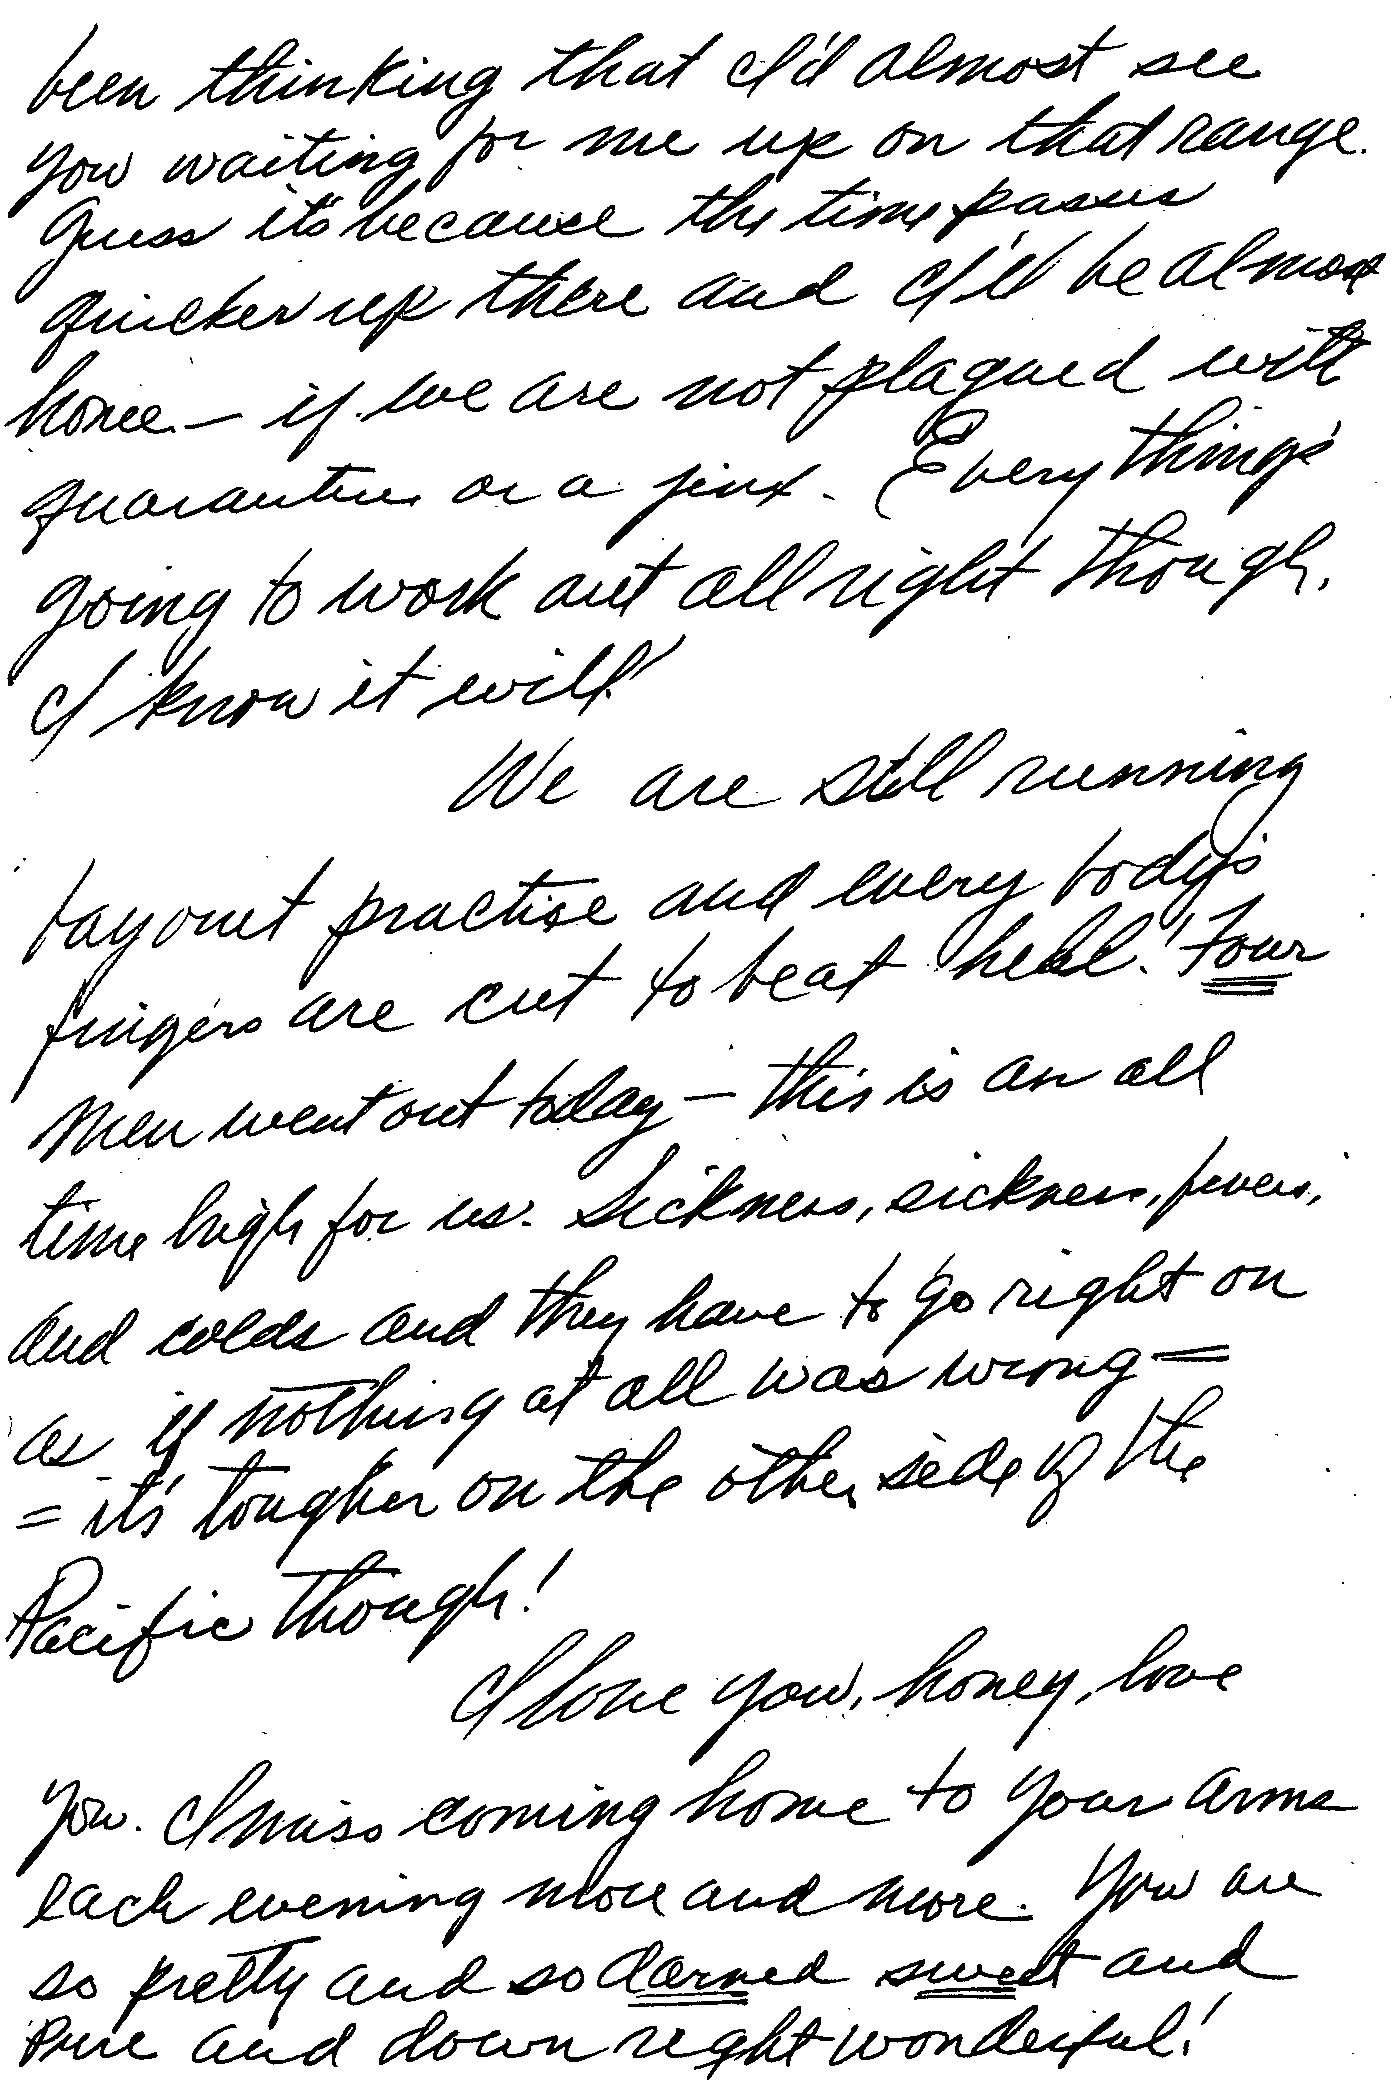 been thinking that I'd almost see
you waiting for me up on that range.
Guess it's because the time passes
quicker up there and I'll be almost
home — if we are not plagued with
quarantine or a jinx. Everything's
going to work out all right though,
I know it will!
We are still running
bayonet practise and every body's
fingers are cut to beat hell! Four
men went out today — this is an all
time high for us. Sickness, sickness, fevers,
and colds and they have to go right on
as if nothing at all was wrong =
= it's tougher on the other side of the
Pacific though!
I love you, honey, love
you. I miss coming home to your arms
each evening more and more. You are
so pretty and so darned sweet and
pure and down right wonderful!